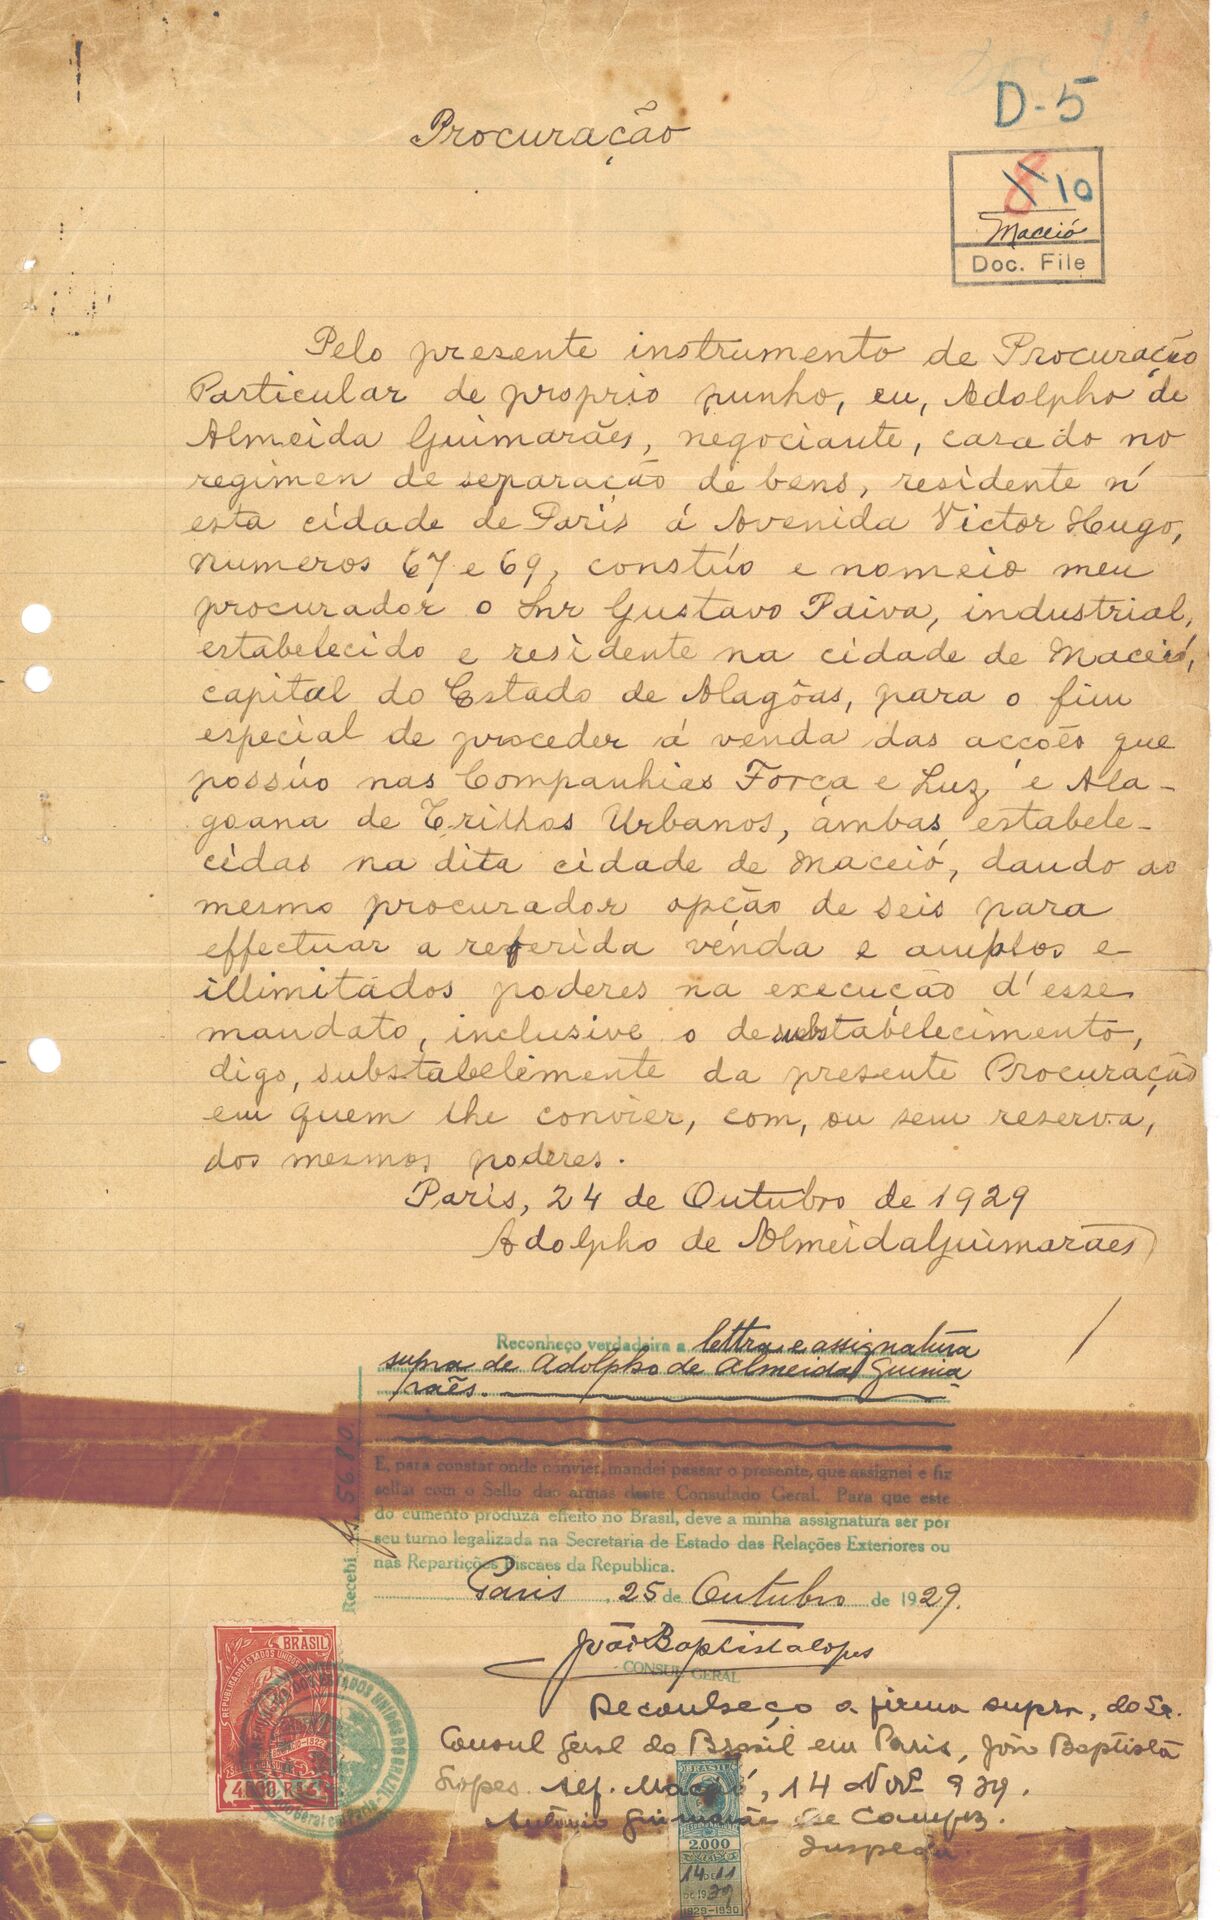 D-5
Procuração
8 10
Maceió
Doc. File
Pelo presente instrumento de Procuração
Particular de proprio punho, eu, Adolpho de
Almeida Guimarães, negociante, casado no
regimen de separação de bens, residente n'
esta cidade de Paris á Avenida Victor Hugo,
numeros 67 e 69, constúo e nomeio meu
procurador o Snr Gustavo Paiva, industrial,
estabelecido e residente na cidade de Maceió,
capital do Estado de Alagôas, para o fim
especial de proceder á venda das acções que
possúo nas Companhias Força e Luz, e Ala-
goana de Trilhos Urbanos, âmbas estabele-
cidas na dita cidade de Maceió, dando ao
mesmo procurador opção de seis para
effectuar a referida venda e amplos e
illimitádos poderes na execução d'esse
mandato, inclusive o desubstabelecimento,
digo, substabelemente da presente Procuração
em quem lhe convier, com, ou sem reserva,
dos mesmos poderes.
Paris, 24 de Outubro de 1929
Adolpho de Almeida Guimarães
Reconheço verdadeira a lettra e assignatura
supra de Adolpho de Almeida Guima-
rães.
E, para constar onde convier, mandei passar o presente, que assignei e fiz
sellar com o Sello das armas deste Consulado Geral. Para que este
do cumento produza effeito no Brasil, deve a minha assignatura ser por
seu turno legalizada na Secretaria de Estado das Relações Exteriores ou
nas Repartições Fiscaes da Republica.
Recebi
Paris, 25 de Outubro de 1929.
João Baptista Lopes
CONSUL GERAL
Reconheço a firma supra, do Sr.
Consul Geral do Brasil em Paris, João Baptista
Lopes. Alf. Maceió, 14 Nov. 929.
Antônio Guimarães de Campos.
Inspector
BRASIL
4.000 RS
BRASIL
2.000
14 DE 11
DE 1929
1929-1930